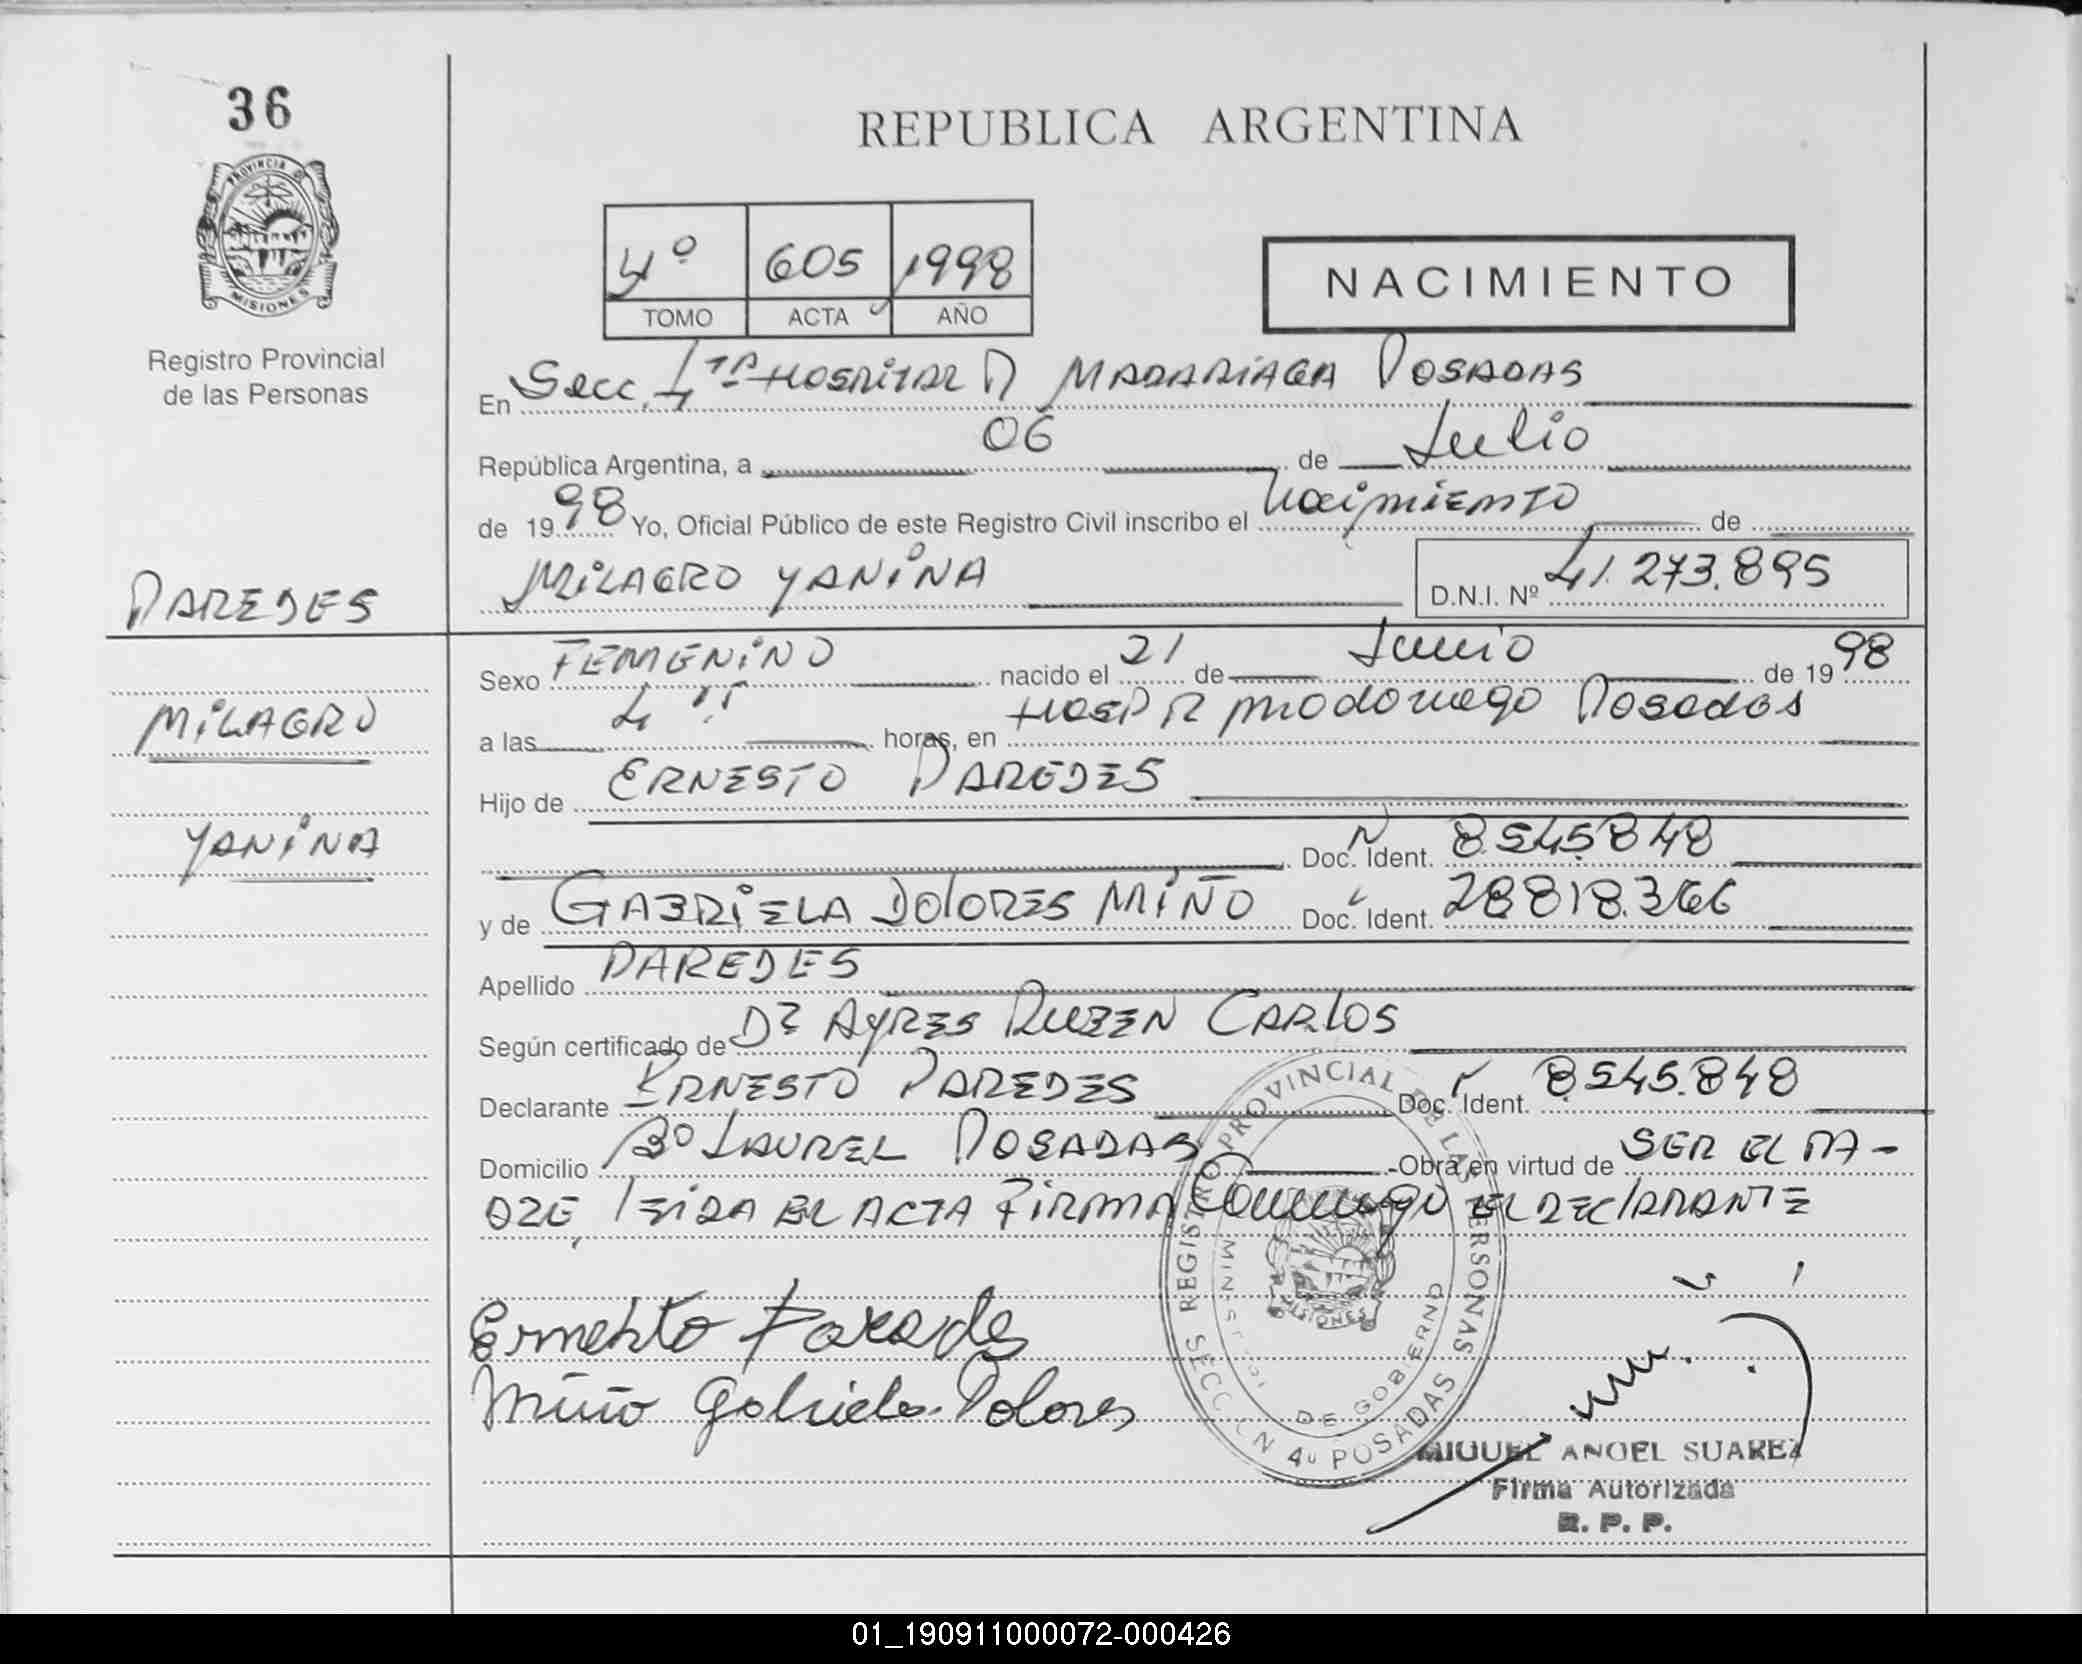 36
REPUBLICA ARGENTINA
PROVINCIA D
MISIONES
Registro Provincial
de las Personas
4º 605 1998
TOMO ACTA AÑO
NACIMIENTO
En Secc. 4ta Hospital R MADARIAGA POSADAS
República Argentina, a 06 de Julio
de 1998 Yo, Oficial Público de este Registro Civil inscribo el Nacimiento de
PAREDES
MILAGRO YANINA
D.N.I. Nº 41.273.895
Sexo FEMENINO nacido el 21 de Junio de 1998
MILAGRO
a las 4 horas, en HOSP R Posadas
Hijo de ERNESTO PAREDES
YANINA
Doc. Ident. 8.545.848
y de GABRIELA DOLORES MIÑO Doc. Ident. 28.818.366
Apellido PAREDES
Según certificado de Dr AYRES RUBEN CARLOS
Declarante ERNESTO PAREDES Doc. Ident. 8.545.848
Domicilio Bº LAUREL POSADAS Obra en virtud de SER EL PA-
DRE, LEIDA EL ACTA FIRMA Conmigo EL DECLARANTE
REGISTRO PROVINCIAL DE LAS PERSONAS
DE GOBIERNO
4º POSADAS
MISIONES
Ernesto Paredes
Miño Gabriela Dolores
MIGUEL ANGEL SUAREZ
Firma Autorizada
R. P. P.
01_190911000072-000426